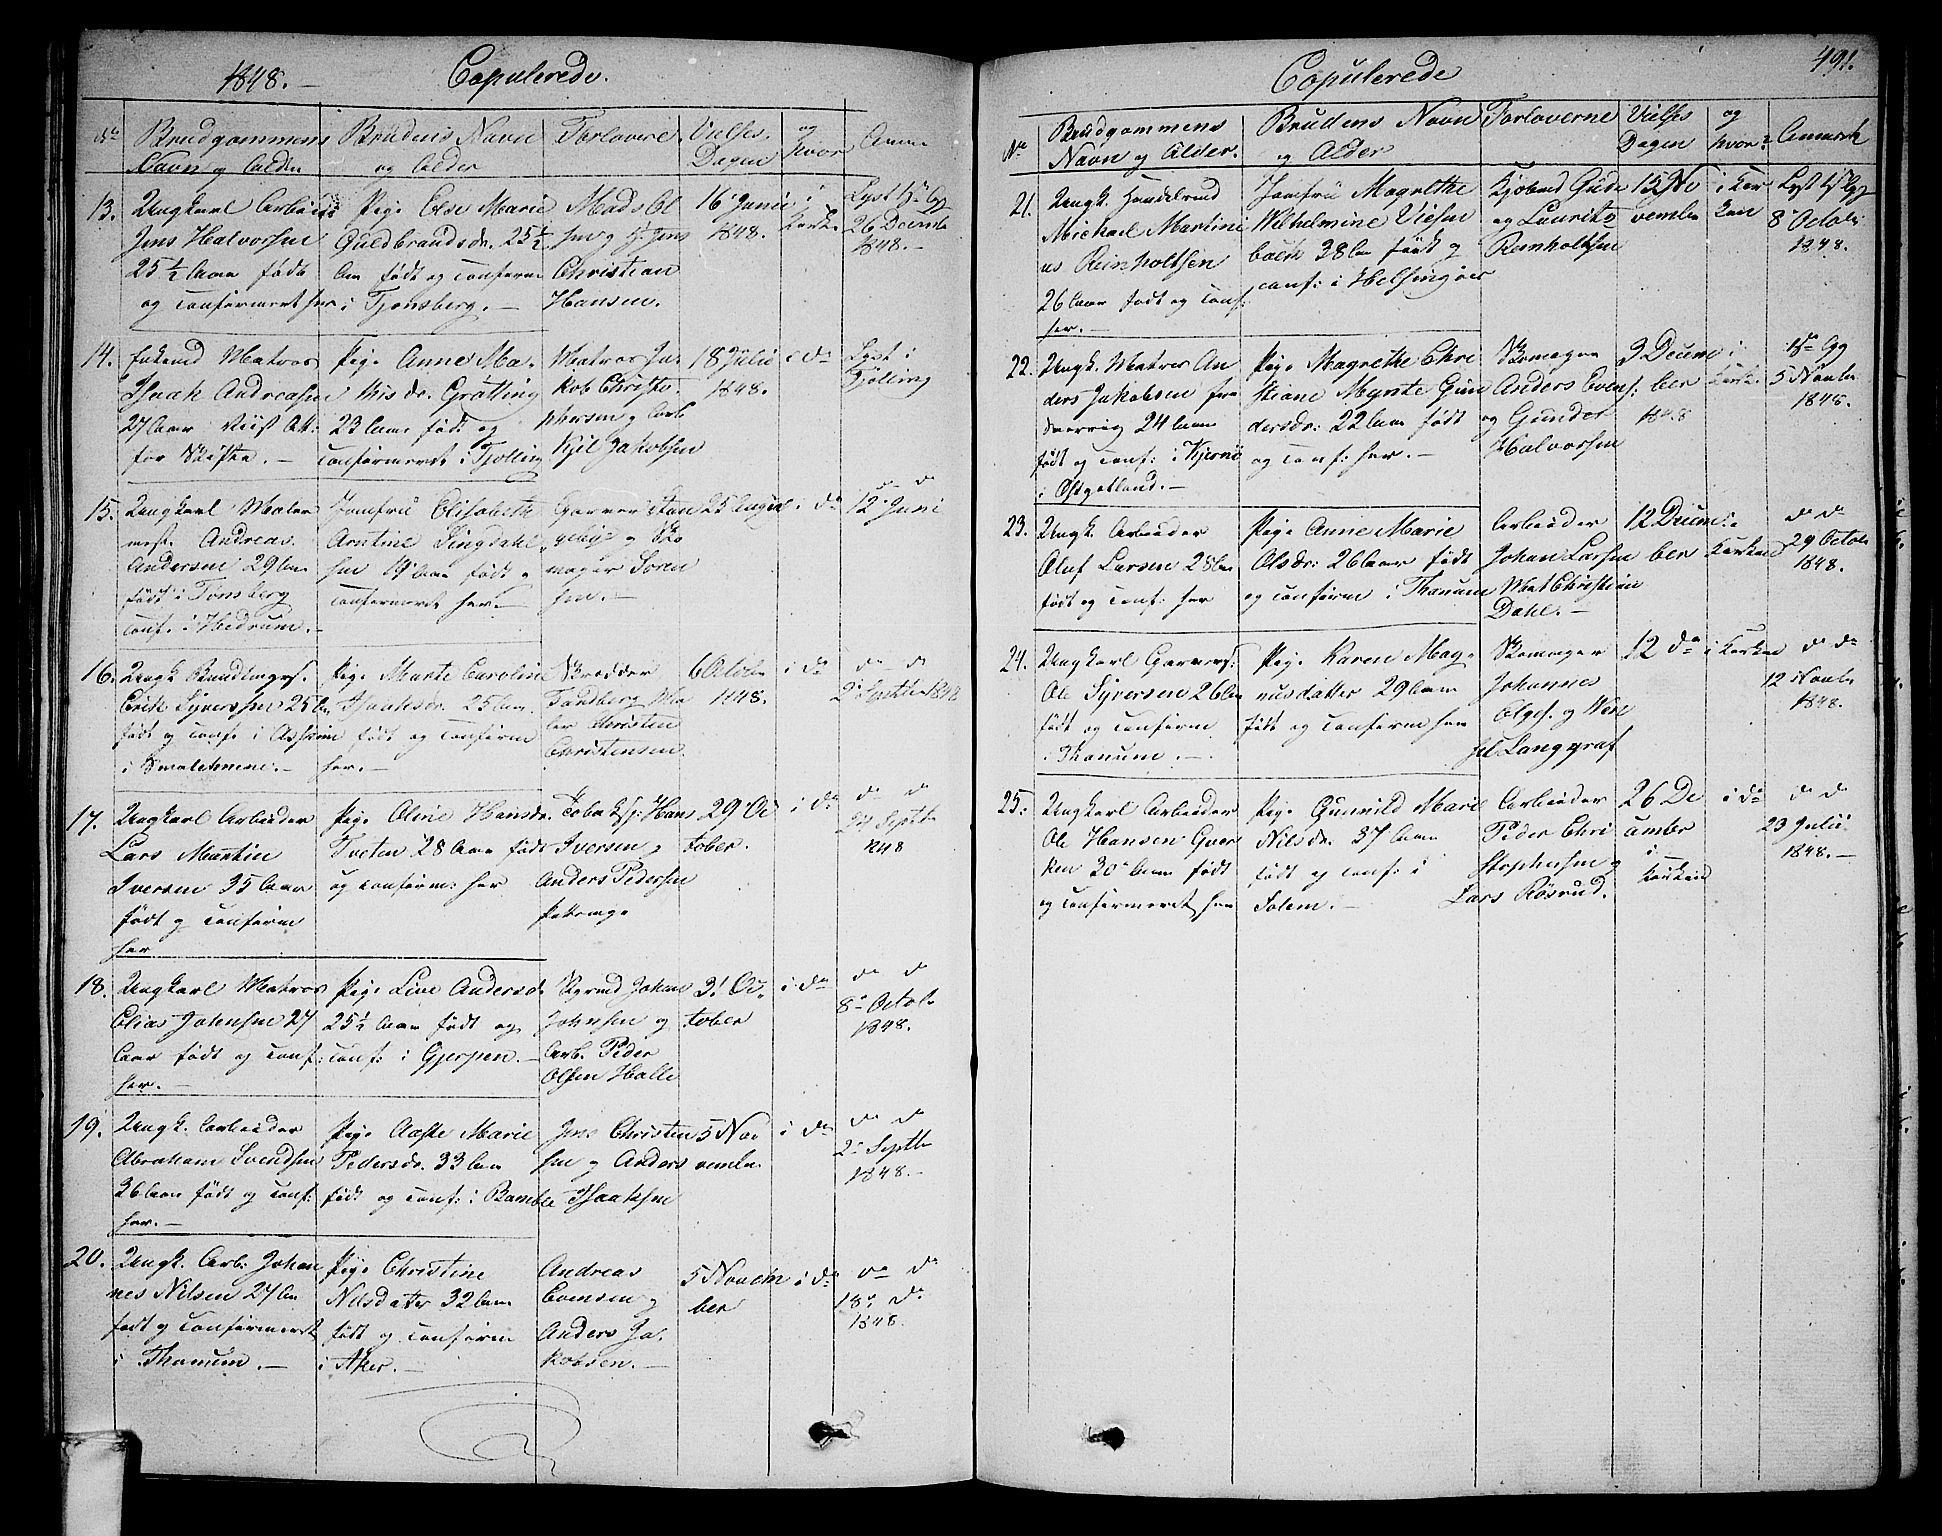 1848. Copulerede.
No Brudgommens Navn og Alder
Brudens Navn og Alder
Forlovere
Vielses Dagen
og hvor
Anm
13. Ungkarl Arbeider
Jens Halvorsen
25½ Aar født
og confirmeret her
Pige Else Marie
Guldbrandsdr. 25½
Aar født og confirm
i Tjønsberg.
Mads Ol
sen og Jens
Christian
Hansen.
16 Junii
1848.
i
Kirke
Lyst 1ste Gg
26 Decemb
1848.
14. Enkemd Matros
Isaak Andreasen
27 Aar Viist Att:
for Skifte.
Pige Anne Ma
Nilsdr. Grøtting
23 Aar født og
confirmeret i Tjølling
Matros Ja
kob Christo
phersen og Arb
Kjel Jakobsen
18 Julii
1848.
i do
Lyst i
Tjølling
15. Ungkarl Maler
mest. Andreas
Andersen 29 Aar
født i Tønsberg
conf. i Hedrum.
Jomfru Elisabeth
Arntine Lingdahl
sen 19 Aar født og
confirmeret her.
Garver
og Sko
mager Søren
sen.
25 August
i do
do do
12 Juni
16. Ungk Bundtmagers.
Erik Syversen 25 Aar
født og conf. i Askim
i Smalehnene.
Pige Marte Caroline
Isaaksdr. 25 Aar
født og confirm
her.
Skrædder
Sandberg Ma
ler Christen
Christensen
6 October
1848.
i do
do do
2 Septbr 1848
17. Ungkarl Arbeider
Lars Martin
Iversen 35 Aar
født og confirm
her
Pige Oline Hansdr.
Tveten 28 Aar født
og confirm: her
Hans
Iversen og
Anders Pedersen
29 Oc
tober.
i do
do do
24 Septbr
1848
18. Ungkarl Matros
Elias Johnsen 27
Aar født og conf:
her.
Pige Live Andersd.
25½ Aar født og
conf: i Gjerpen.
Johan
Johnsen og
Arb. Peder
Olsen Halle
31 Oc
tober
i do
do do
8 Octob
1848.
19. Ungk. Arbeider
Abraham Svendsen
36 Aar født og conf:
her.
Pige Aaste Marie
Pedersdr. 33 Aar
født og conf: i Bamble
Jens Christen
sen og Anders
Isaaksen
5 Nov
vember
i do
do do
2 Septb
1848.
20. Ungk. Arb: Johan
nes Nilsen 27 Aar
født og confirmeret
i Thanum.
Pige Christine
Nilsdater 32 Aar
født og confirm
i Aker.
Andreas
Evensen og
Anders Ja
kobsen.
5 Novem
ber
i do
do do
18 do
1848.
Copulerede 491.
No Brudgommens Navn og Alder.
Brudens Navn og Alder
Forloverne
Vielses Dagen
og hvor?
Anmærk
21. Ungk. Handelsmd
Michael Martini
us Reinholtsen
26 Aar født og conf:
her.
Jomfru Magrethe
Wilhelmine Viesen
bach 38 Aar født og
conf: i Helsingøer
Kjøbmd Gude
og Lauritz
Reinholtsen
15 No
vember
i Kir
ken
Lyst 1ste Gg
8 Octobr
1848.
22. Ungk. Matros An
ders Jakobsen fra
24 Aar
født og conf: i
i Østgotland.
Pige Magrethe Chri
stiane Mynte Gun
dersdr. 22 Aar født
og conf: her.
Skomager
Anders Evens:
og Gunder
Halvorsen
9 Decem
ber
1848
i
Kirke
1ste Gg
5 Novbr
1848.
23. Ungk. Arbeider
Oluf Larsen 28 Aar
født og conf: her
Pige Anne Marie
Olsdr. 26 Aar født
og confirm i Thanum
Arbeider
Johan Larsen
Christian
Dahl.
12 Decem
ber
i
Kirken
do do
29 Octobr
1848.
24. Ungkarl Garvers:
Ole Syversen 26 Aar
født og confirm
i Thanum.
Pige Karen Mag
nusdatter 29 Aar
født og confirm her
Skomager
Johannes
Olges. og
Langgraf
12 do
i Kirken
do do
12 Novbr
1848.
25. Ungkarl Arbeider
Ole Hansen Qver
ken 30 Aar født
og confirmeret her
Pige Gunild Marie
Nilsdr. 37 Aar
født og conf: i
Solem.
Arbeider
Peder Chri
stophersen og
Lars Røsrud.
26 De
cember
i
Kirken
i do
do do
23 Julii
1848.